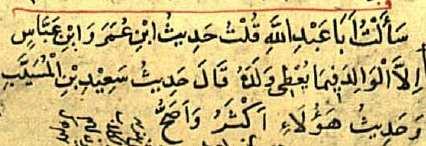 سَأَلْتُ أَبَا عَبْدِ اللَّهِ قُلْتُ حَدِيثُ ابْنِ عُمَرَ وَابْنِ عَبَّاسٍ
إِلَّا الْوَالِدَ فِيمَا يُعْطِي وَلَدَهُ قَالَ حَدِيثُ سَعِيدِ بْنِ الْمُسَيَّبِ
وَحَدِيثُ هَؤُلَاءِ أَكْثَرُ وَأَصَحُّ